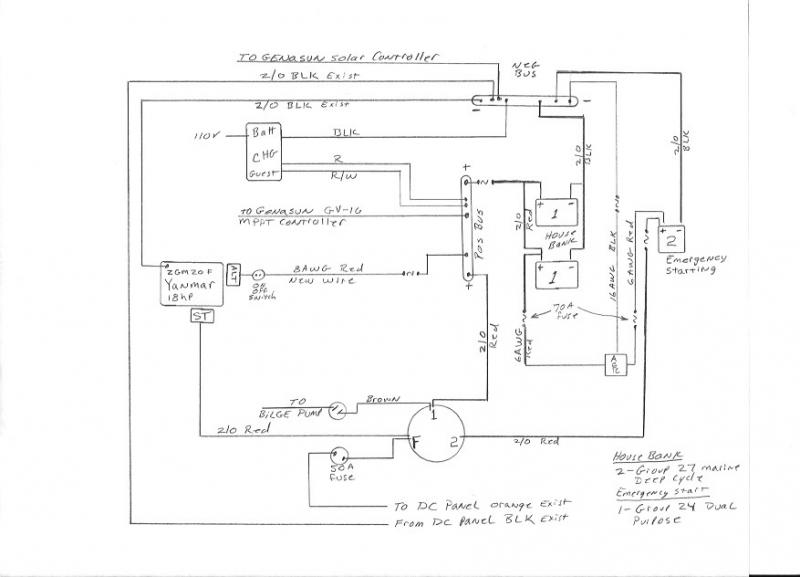 TO GENASUN SOLAR CONTROLLER
NEG
BUS
2/0 BLK Exist
2/0 BLK Exist
-
-
110V
Batt
CHG
GUEST
BLK
R
R/W
+
2/0
BLK
2/0
BLK
TO GENASUN GV-10
MPPT CONTROLLER
POS BUS
+
2/0
Red
+ -
1
HOUSE
BANK
+ -
1
16 AWG BLK
6 AWG Red
+ -
2
Emergency
Starting
2GM20F
Yanmar
18hp
ALT
ON
OFF
Switch
8AWG Red
New Wire
ST
2/0
Red
6AWG
Red
70A
Fuse
TO
BILGE PUMP
Brown
1
F
2
2/0 Red
2/0 Red
50A
Fuse
TO DC PANEL Orange Exist
From DC PANEL BLK Exist
House Bank
2-Group 27 marine
Deep Cycle
Emergency Start
1-Group 24 Dual
Purpose